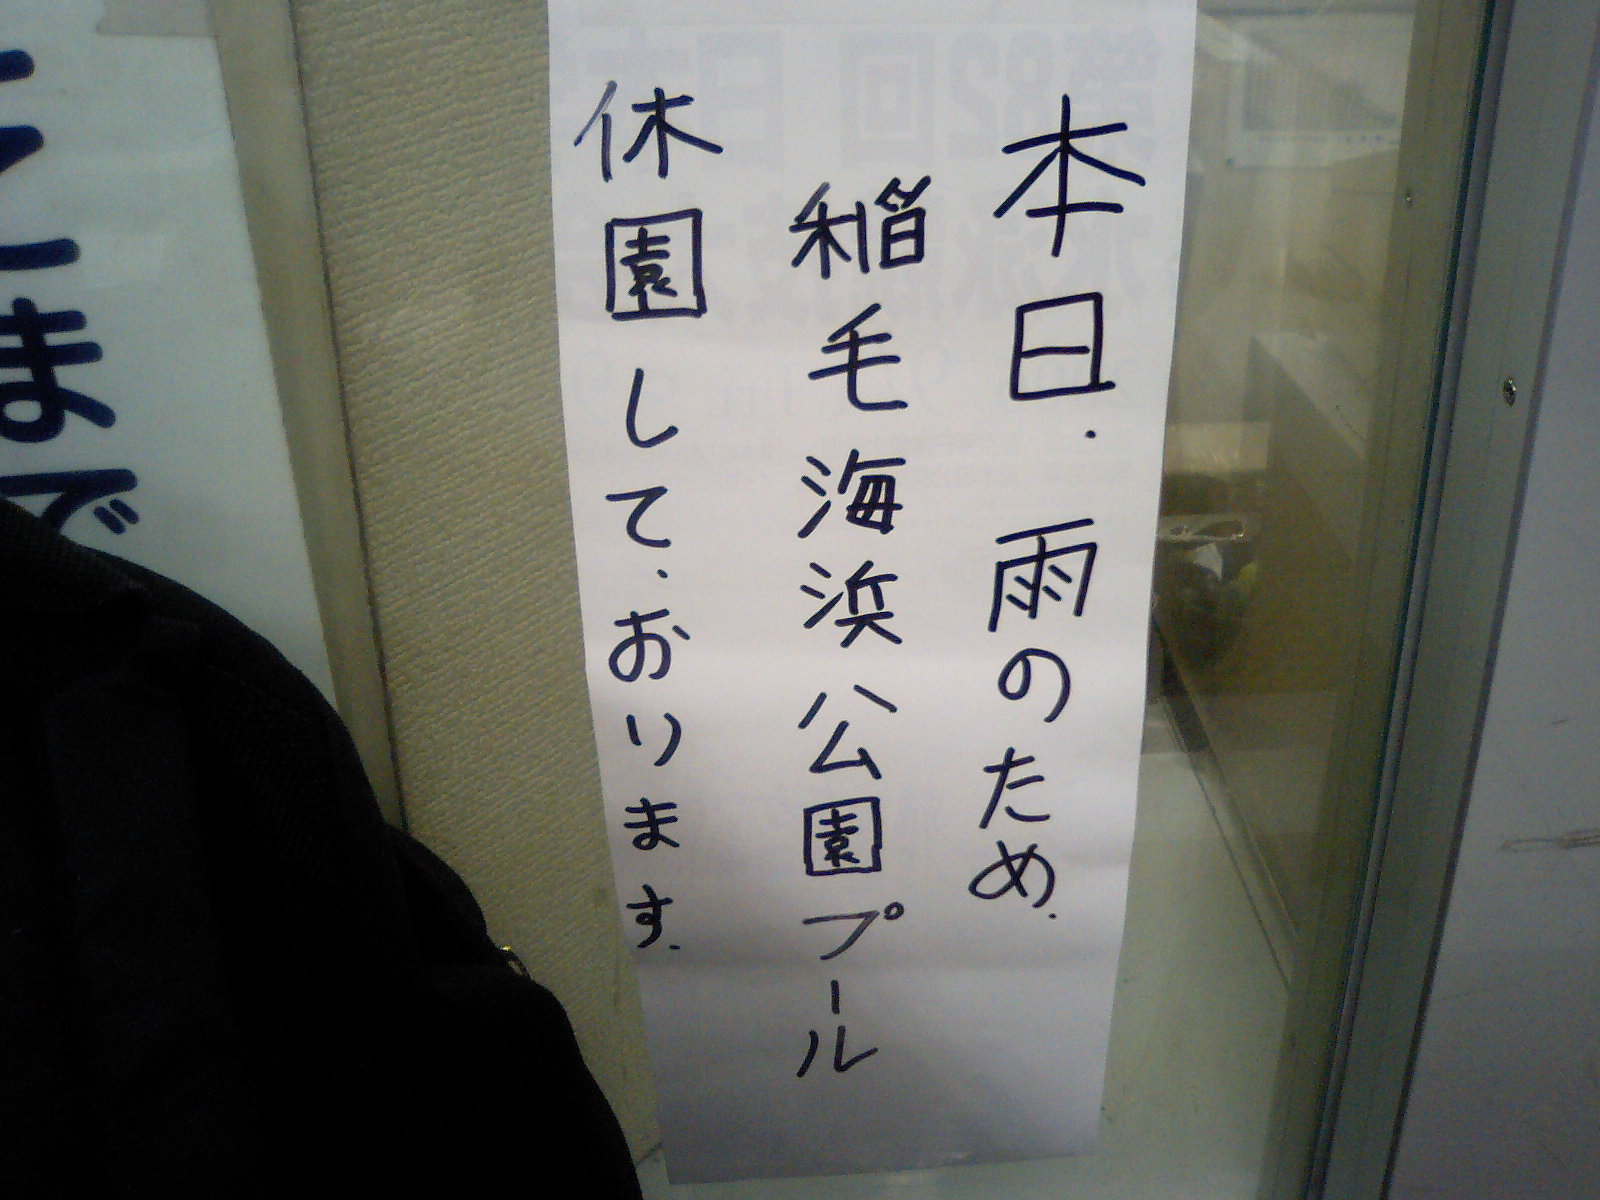 本日.雨のため.
稲毛海浜公園プール
休園して.おります.
こまで